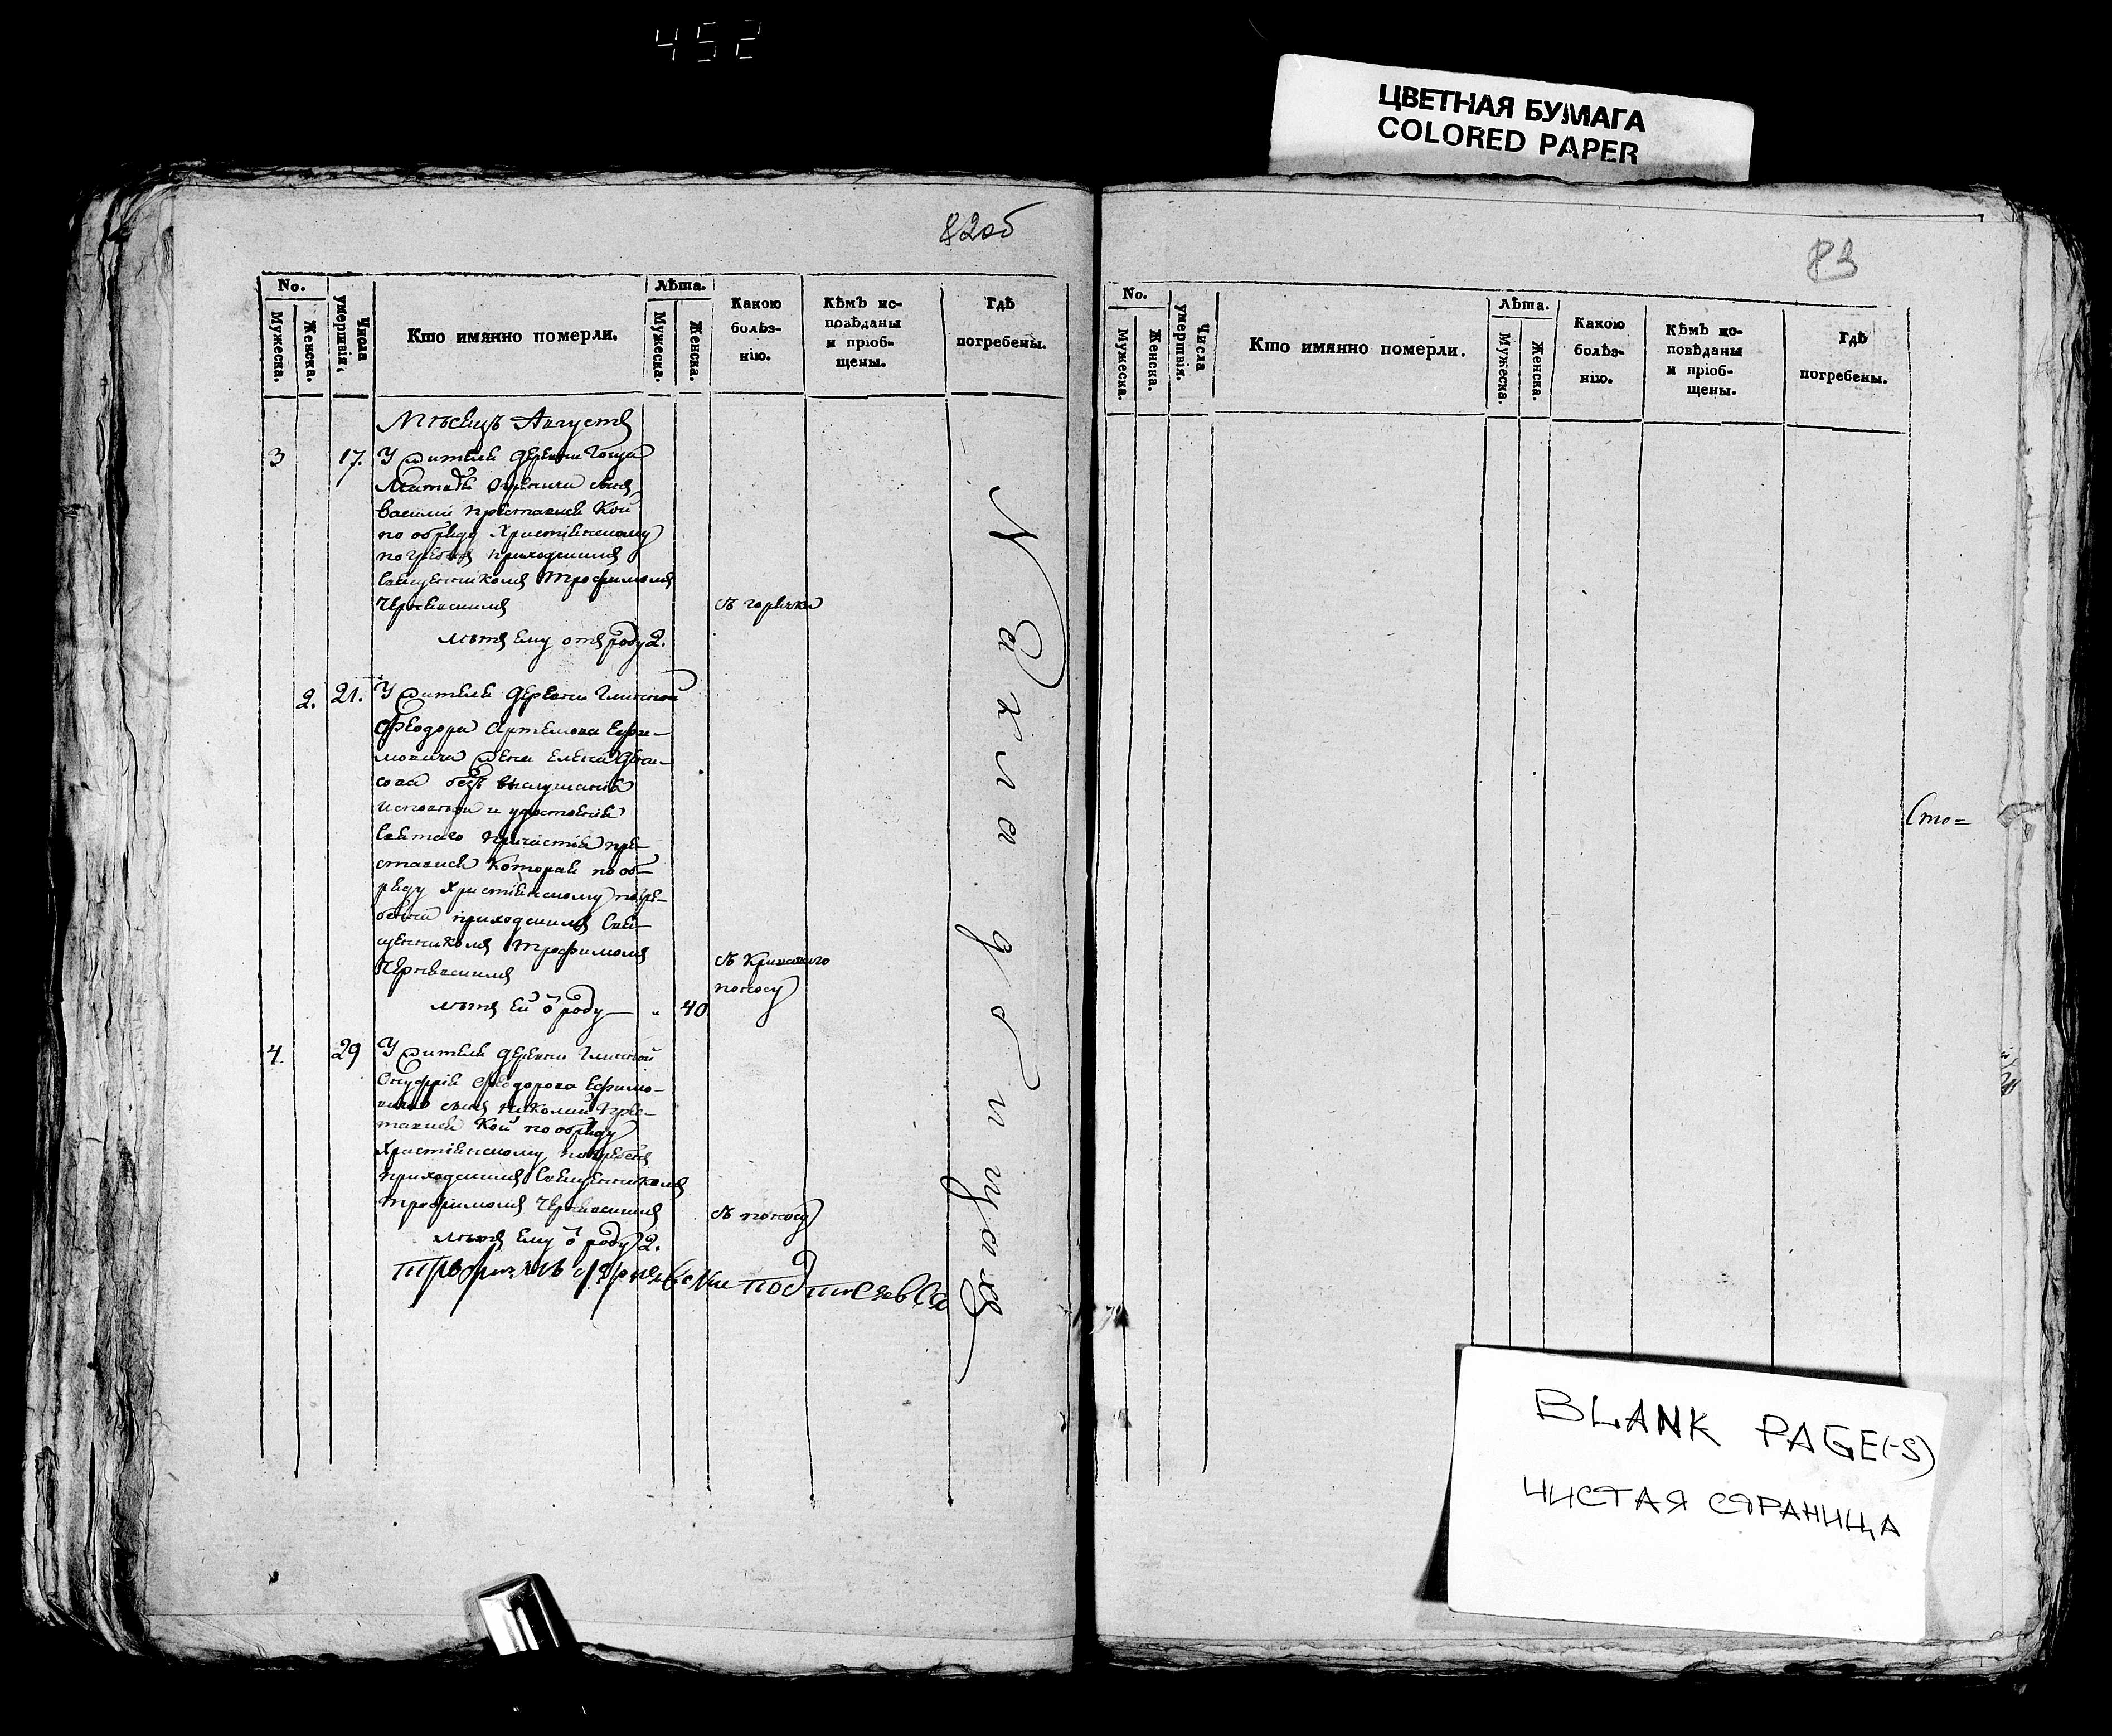 452
ЦВЕТНАЯ БУМАГА
COLORED PAPER
82об
No.
Мужеска.
Женска.
Числа умертвія.
Кто имянно померли.
Лѣта.
Мужеска.
Женска.
Какою
болѣз-
нію.
Кѣмъ ис-
повѣданы
и пріоб-
щены.
Гдѣ
погребены.
Мѣсецъ Августъ
3 17. У жителя деревни
сынъ
василий преставися Кой
по обряду Христіянскому
погребенъ приходскимъ
Священникомъ Трофимомъ
съ горячки
лѣтъ ему отъ роду 2.
2. 21. У жителя деревни Глинной
Феодора Артемова Ефи-
мовича жена Елена Дени-
сова безъ выслушанія
исповѣди и удостоенія
Святаго Причастія пре-
ставися Которая по об-
ряду Христіянскому погре-
бенна приходскимъ Свя-
щенникомъ Трофимомъ
съ Кривавого
поносу
лѣтъ ей о роду 40
4. 29 У жителя деревни Глинной
Онуфрія Феодорова Ефимо-
вича сынъ Николай Прес-
тавися Кой по обряду
Христіянскому погребенъ
приходскимъ Священникомъ
Трофимомъ
съ поносу
лѣтъ ему о роду 2.
подписався
На кладбищахъ
83
No.
Мужеска.
Женска.
Числа умертвія.
Кто имянно померли.
Лѣта.
Мужеска.
Женска.
Какою
болѣз-
нію.
Кѣмъ ис-
повѣданы
и пріоб-
щены.
Гдѣ
погребены.
Сто=
BLANK PAGE(-S)
ЧИСТАЯ СТРАНИЦА